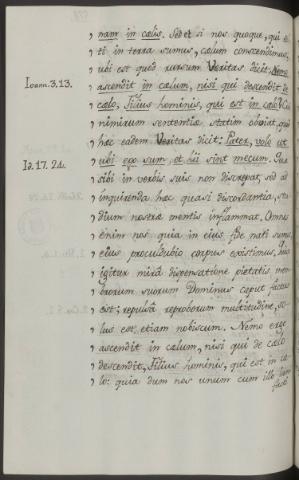 nam in cælis. Sed et si nos quoque, qui
ti in terra sumus, cælum conscendimus,
ubi est quod rursum Veritas dicit: Nemo
Ioann. 3. 13.
ascendit in cælum, nisi qui descendit de
cælo, Filius hominis, qui est in cælo?
nimirum sententiæ statim obviat, quod
hæc eadem Veritas dicit: Pater, volo ut
Id. 17. 24.
ubi ego sum, et hi sint mecum.
sibi in verbis suis non discrepat, sed ad
inquirenda hæc quasi discordantia, stu
dium nostræ mentis inflammat. Omnes
enim nos, quia in ejus fide nati sumus,
ejus proculdubio corpus existimus,
igitur mira dispensatione pietatis mem
brorum suorum Dominus caput factus
est; repulsa reproborum multitudine, so
lus est etiam nobiscum. Nemo ergo
ascendit in cælum, nisi qui de cælo
descendit, Filius hominis, qui est in cæ
lo: quia dum nos unum cum illo jam